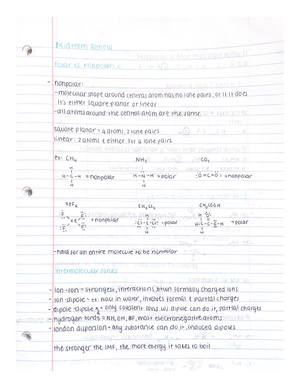 Midterm Review
Polar vs. Nonpolar
- nonpolar:
- molecular shape around central atom has no lone pairs, or if it does
it's either square planar or linear
- all atoms around the central atom are the same
square planar: 4 atoms, 2 lone pairs
linear: 2 atoms & either 3 or 0 lone pairs
ex: CH4 NH3 CO2
H-C-H = nonpolar H-N-H = polar O=C=O = nonpolar
XeF4 CH2Cl2 CH3COOH
= nonpolar = polar = polar
- hard for an entire molecule to be nonpolar
Intermolecular Forces
- ion-ion = strongest, interactions btwn formally charged ions
- ion-dipole = ex. NaCl in water, involves formal & partial charges
- dipole-dipole = only covalent ions w/ dipole can do it, partial charges
- hydrogen bonds = NH, OH, HF, most electronegative atoms
- london dispersion = any substance can do it, induced dipoles
the stronger the IMF, the more energy it takes to boil